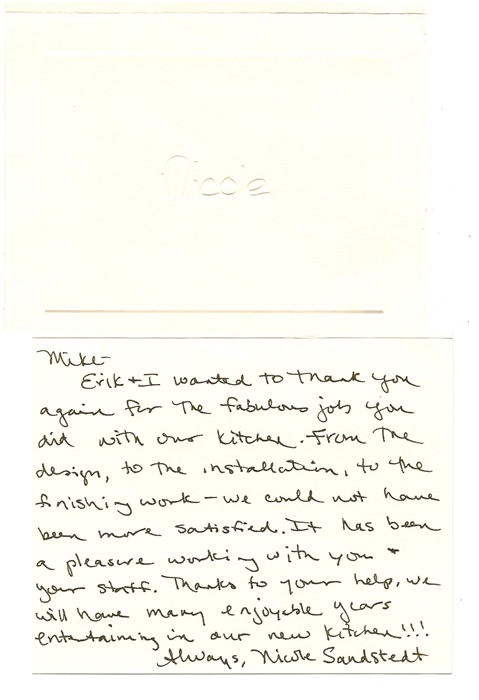 Nicole
Mike-
Erik + I wanted to thank you
again for the fabulous job you
did with our kitchen. From the
design, to the installation, to the
finishing work - we could not have
been more satisfied. It has been
a pleasure working with you +
your staff. Thanks to your help, we
will have many enjoyable years
entertaining in our new kitchen!!!
Always, Nicole Sandstedt